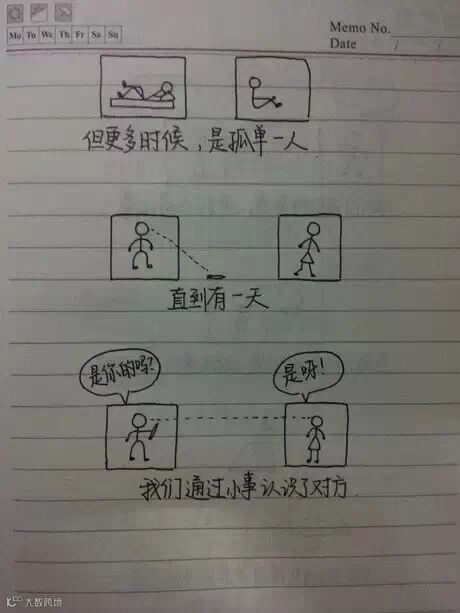 Memo No.
Mo Tu We Th Fr Sa Su
Date / /
但更多时候，是孤单一人
直到有一天
是你的吗?
是呀!
我们通过小事认识了对方
大数跨境